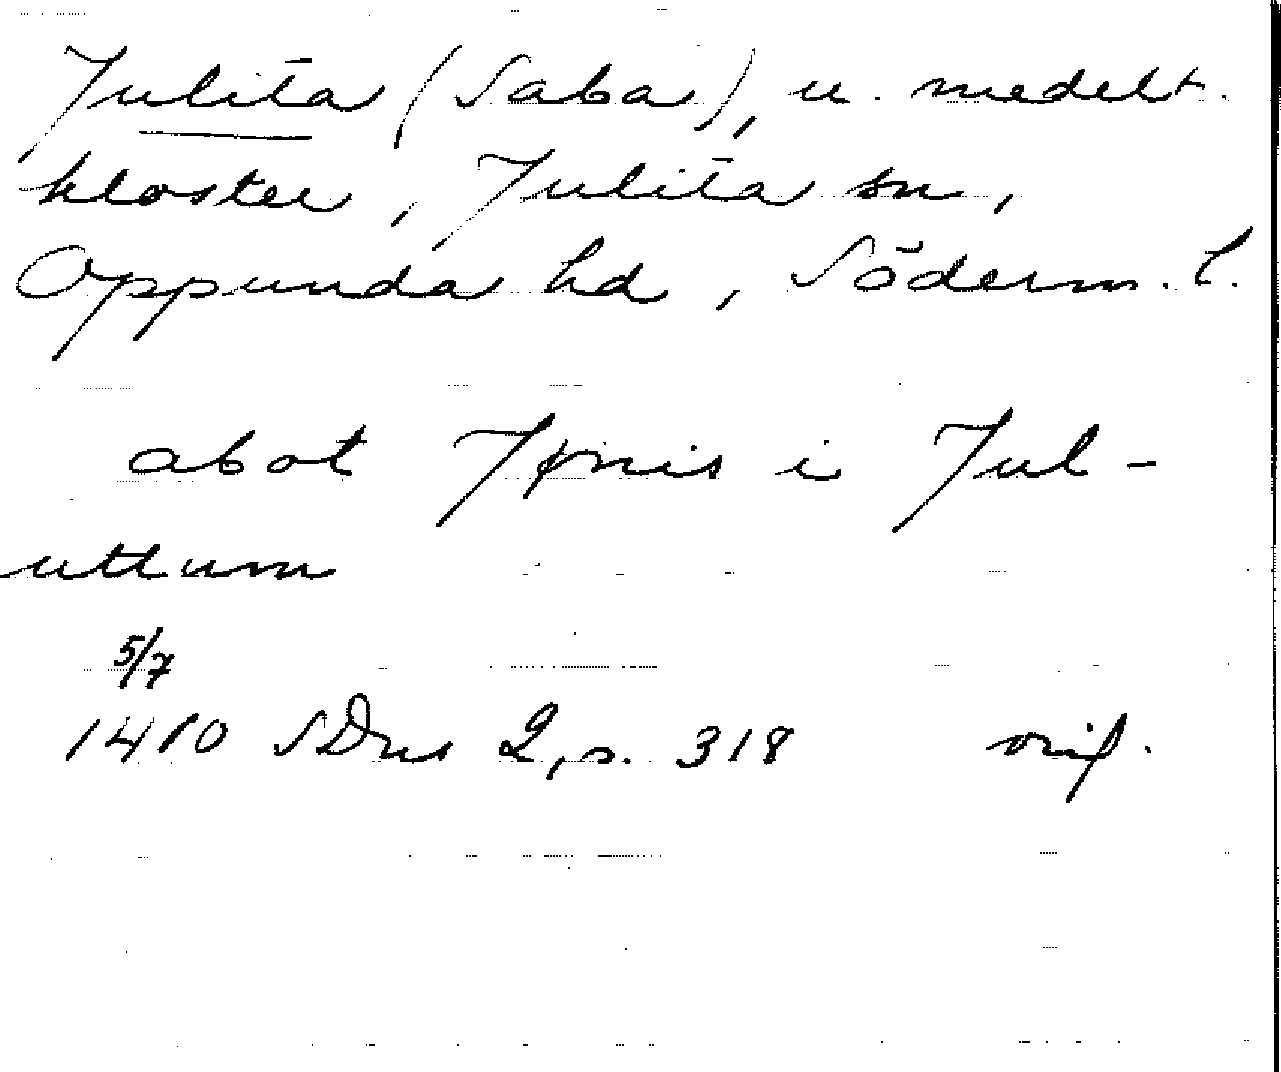 Julita (Saba), u. medelt.
kloster, Julita sn,
Oppunda hd, Söderm. l.
abot Jønis i Jul-
uttum
5/7
1410 SDns 2, s. 318 orig.